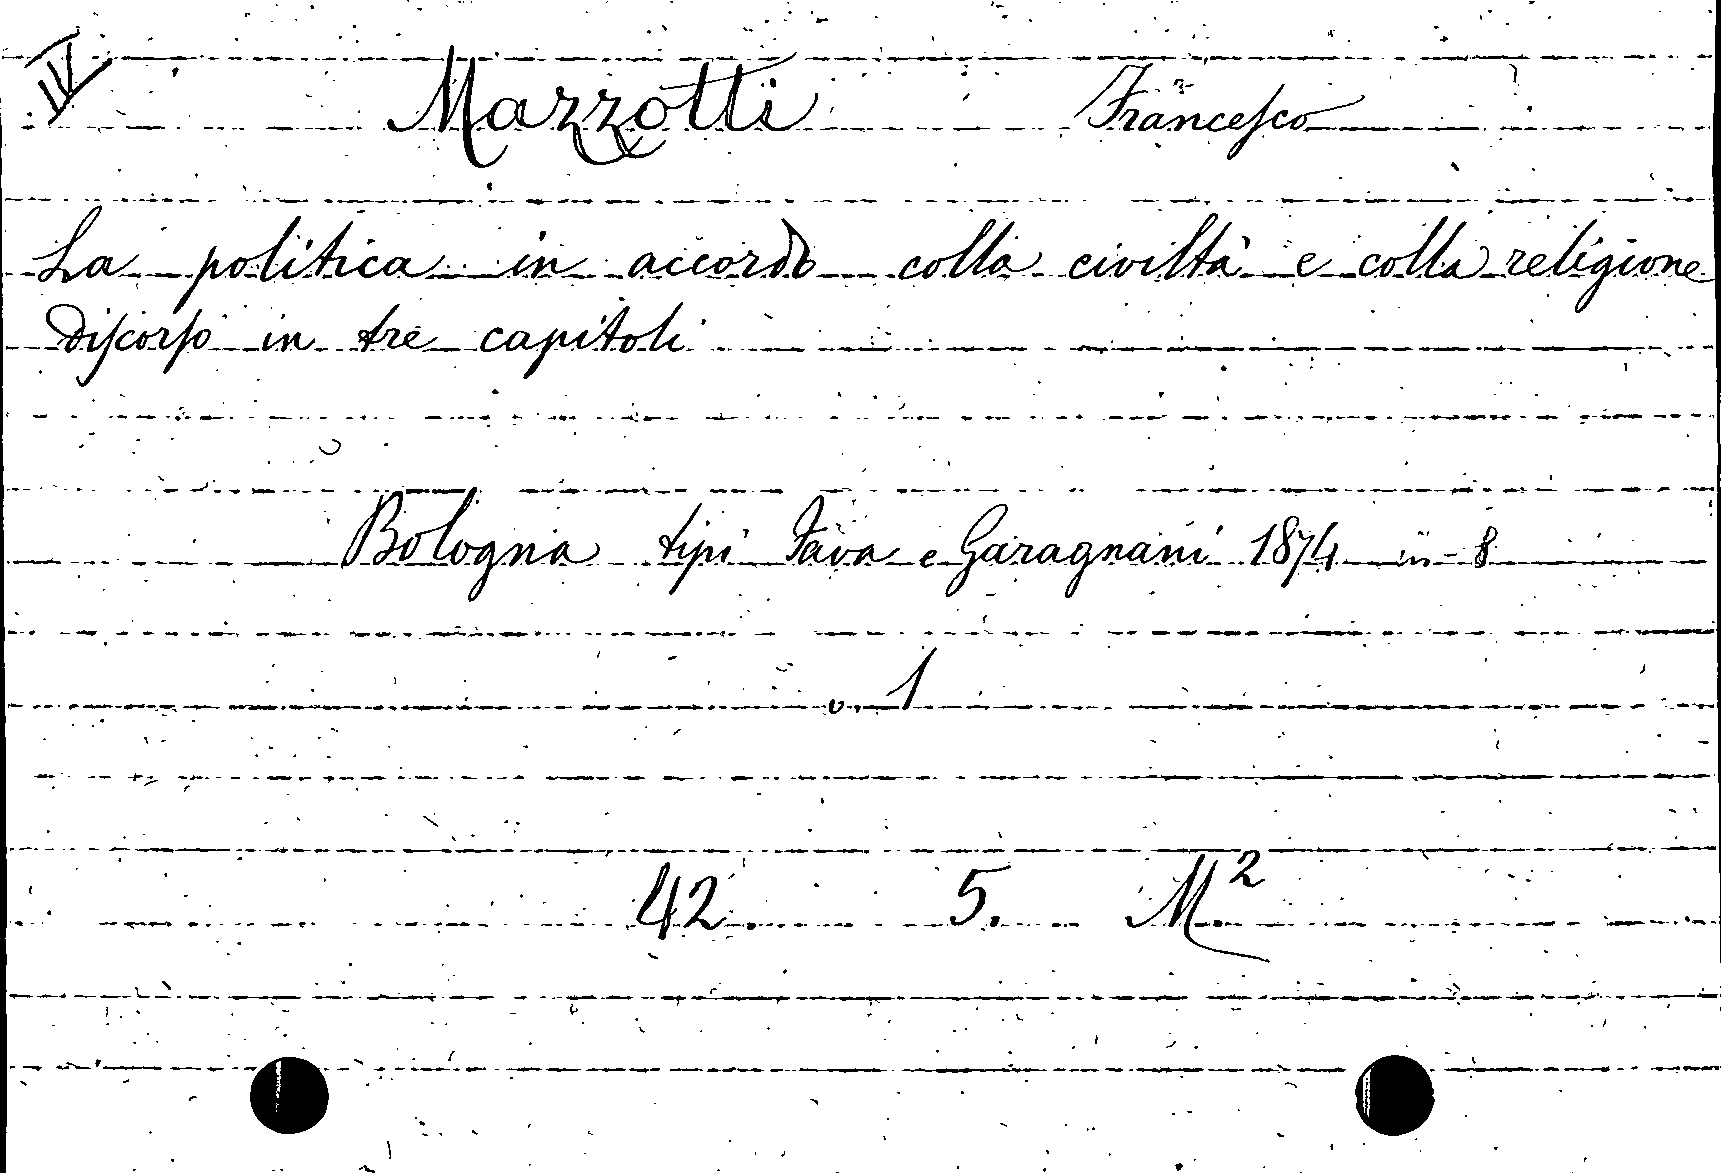 IV
Mazzotti Francesco
La politica in accordo colla civiltà e colla religione
Discorso in tre capitoli
Bologna tipi Fava e Garagnani 1874 in-8
v. 1
42. 5. M.2